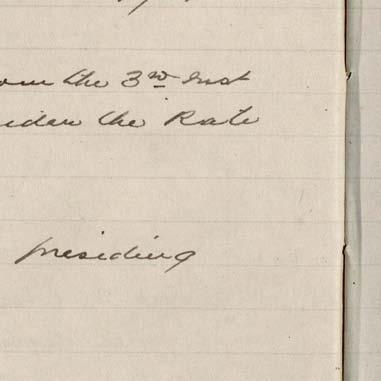 the 3rd Inst
the Rate
presiding